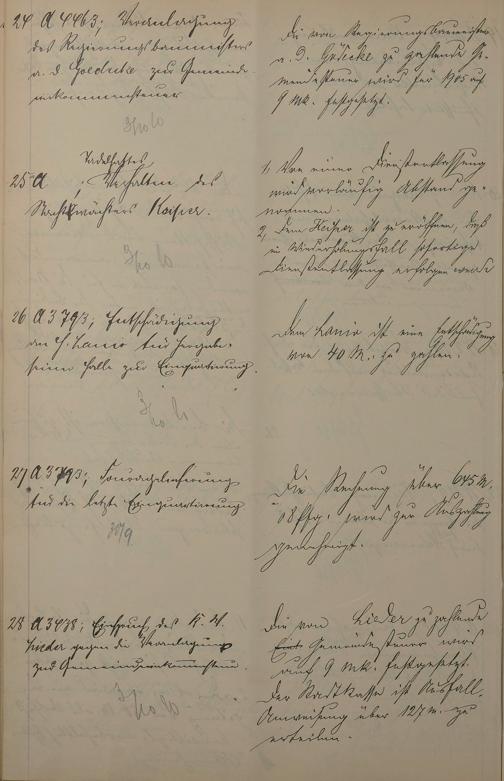 24 A 4463; Veranlagung
des Regierungsbaumeisters
a. D. Goedecke zur Gemeinde-
einkommensteuer
Die vom Regierungsbaumeister
a. D. Gödecke zu zahlende Ge-
meindesteuer wird für 1905 auf
9 Mk. festgesetzt.
Tadelhaftes
25 A ; Verhalten des
Nachtwächters Keiper.
1, Von einer Dienstentlassung
wird vorläufig Abstand ge-
nommen.
2, Dem Keiper ist zu eröffnen, daß
im Wiederholungsfall sofortige
Dienstentlassung erfolgen werde
26 A 3793; Entschädigung
an H. Lamo für Hergabe
seiner Halle zur Einquartierung.
Dem Lamo ist eine Entschädigung
von 40 M. zu zahlen.
27 A 3793; Fouragelieferung
für die letzte Einquartierung
Die Rechnung über 645 M.
08 Pfg. wird zur Auszahlung
genehmigt.
28 A 3438; Einspruch des K. W.
Lieder gegen die Veranlagung
zur Gemeindeeinkommensteuer.
Die vom Lieder zu zahlende
Gemeindesteuer wird
auf 9 Mk. festgesetzt.
Der Stadtkasse ist Ausfall-
Anweisung über 127 M. zu
erteilen.